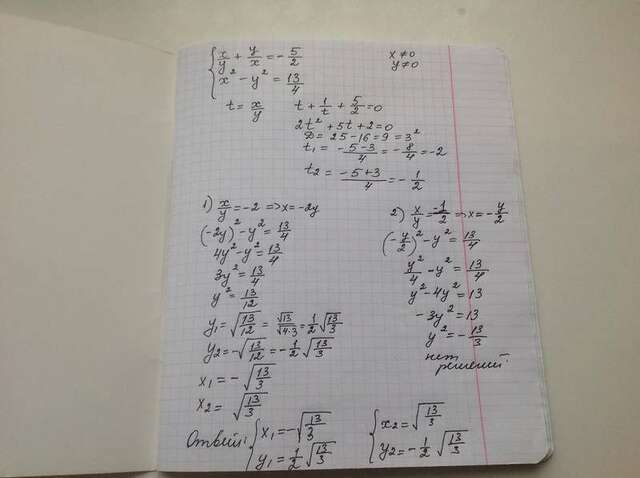 { x/y + y/x = -5/2
x² - y² = 13/4
x ≠ 0
y ≠ 0
t = x/y
t + 1/t + 5/2 = 0
2t² + 5t + 2 = 0
D = 25 - 16 = 9 = 3²
t₁ = (-5-3)/4 = -8/4 = -2
t₂ = (-5+3)/4 = -1/2
1) x/y = -2 => x = -2y
(-2y)² - y² = 13/4
4y² - y² = 13/4
3y² = 13/4
y² = 13/12
y₁ = √(13/12) = √13/√(4·3) = 1/2 √(13/3)
y₂ = -√(13/12) = -1/2 √(13/3)
x₁ = -√(13/3)
x₂ = √(13/3)
2) x/y = -1/2 => x = -y/2
(-y/2)² - y² = 13/4
y²/4 - y² = 13/4
y² - 4y² = 13
-3y² = 13
y² = -13/3
нет
решений.
Ответ: { x₁ = -√(13/3)
y₁ = 1/2 √(13/3)
{ x₂ = √(13/3)
y₂ = -1/2 √(13/3)